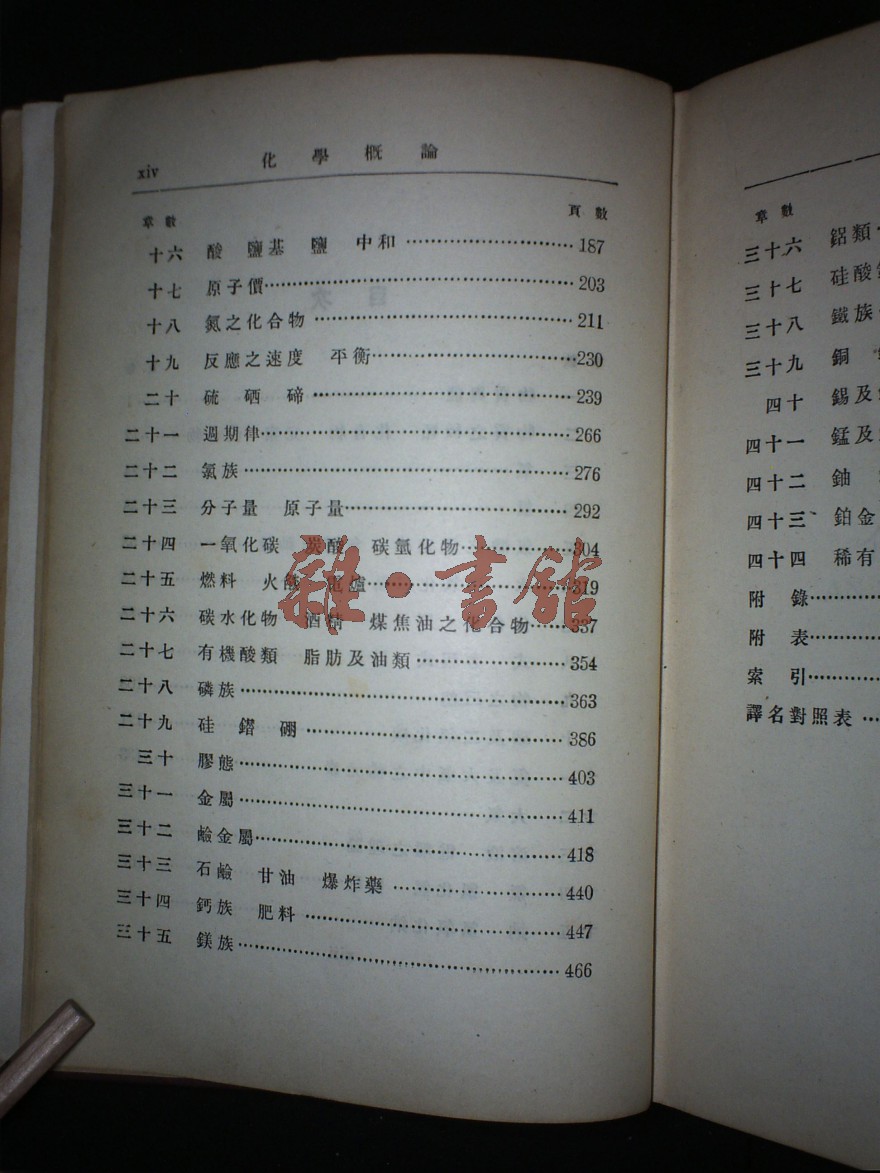 xiv 化學概論
章數 頁數
十六 酸 鹽基 鹽 中和 187
十七 原子價 203
十八 氮之化合物 211
十九 反應之速度 平衡 230
二十 硫 硒 碲 239
二十一 週期律 266
二十二 氯族 276
二十三 分子量 原子量 292
二十四 一氧化碳 炭酸 碳氫化物 304
二十五 燃料 火餤 電爐 319
二十六 碳水化物 酒精 煤焦油之化合物 337
二十七 有機酸類 脂肪及油類 354
二十八 磷族 363
二十九 硅 鍇 硼 386
三十 膠態 403
三十一 金屬 411
三十二 鹼金屬 418
三十三 石鹼 甘油 爆炸藥 440
三十四 鈣族 肥料 447
三十五 鎂族 466
雜·書館
章數
三十六 鋁類
三十七 硅酸
三十八 鐵族
三十九 銅
四十 錫及
四十一 錳及
四十二 鈾
四十三 鉑金
四十四 稀有
附錄
附表
索引
譯名對照表